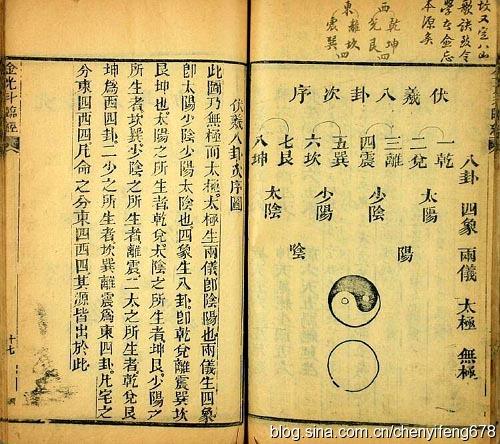 故又定八山
歌訣致令
本源矣
乾坤
西兌艮四
東離坎
震巽四
伏羲八卦次序
八卦 四象 兩儀 太極 無極
一乾 二兌 三離 四震 五巽 六坎 七艮 八坤
太陽 少陰 少陽 太陰
陽 陰
伏羲八卦次序圖
此圖乃無極而太極太極生兩儀卽陰陽也兩儀生四象
卽太陽少陰少陽太陰也四象生八卦卽乾兌離震巽坎
艮坤也太陽之所生者乾兌太陰之所生者坤艮少陽之
所生者坎巽少陰之所生者離震二太之所生者乾兌艮
坤爲西四卦二少之所生者坎巽離震爲東四卦凡宅之
分東四西四凡命之分東四西四其源皆出於此
金光斗臨經
十七
blog.sina.com.cn/chenyifeng678